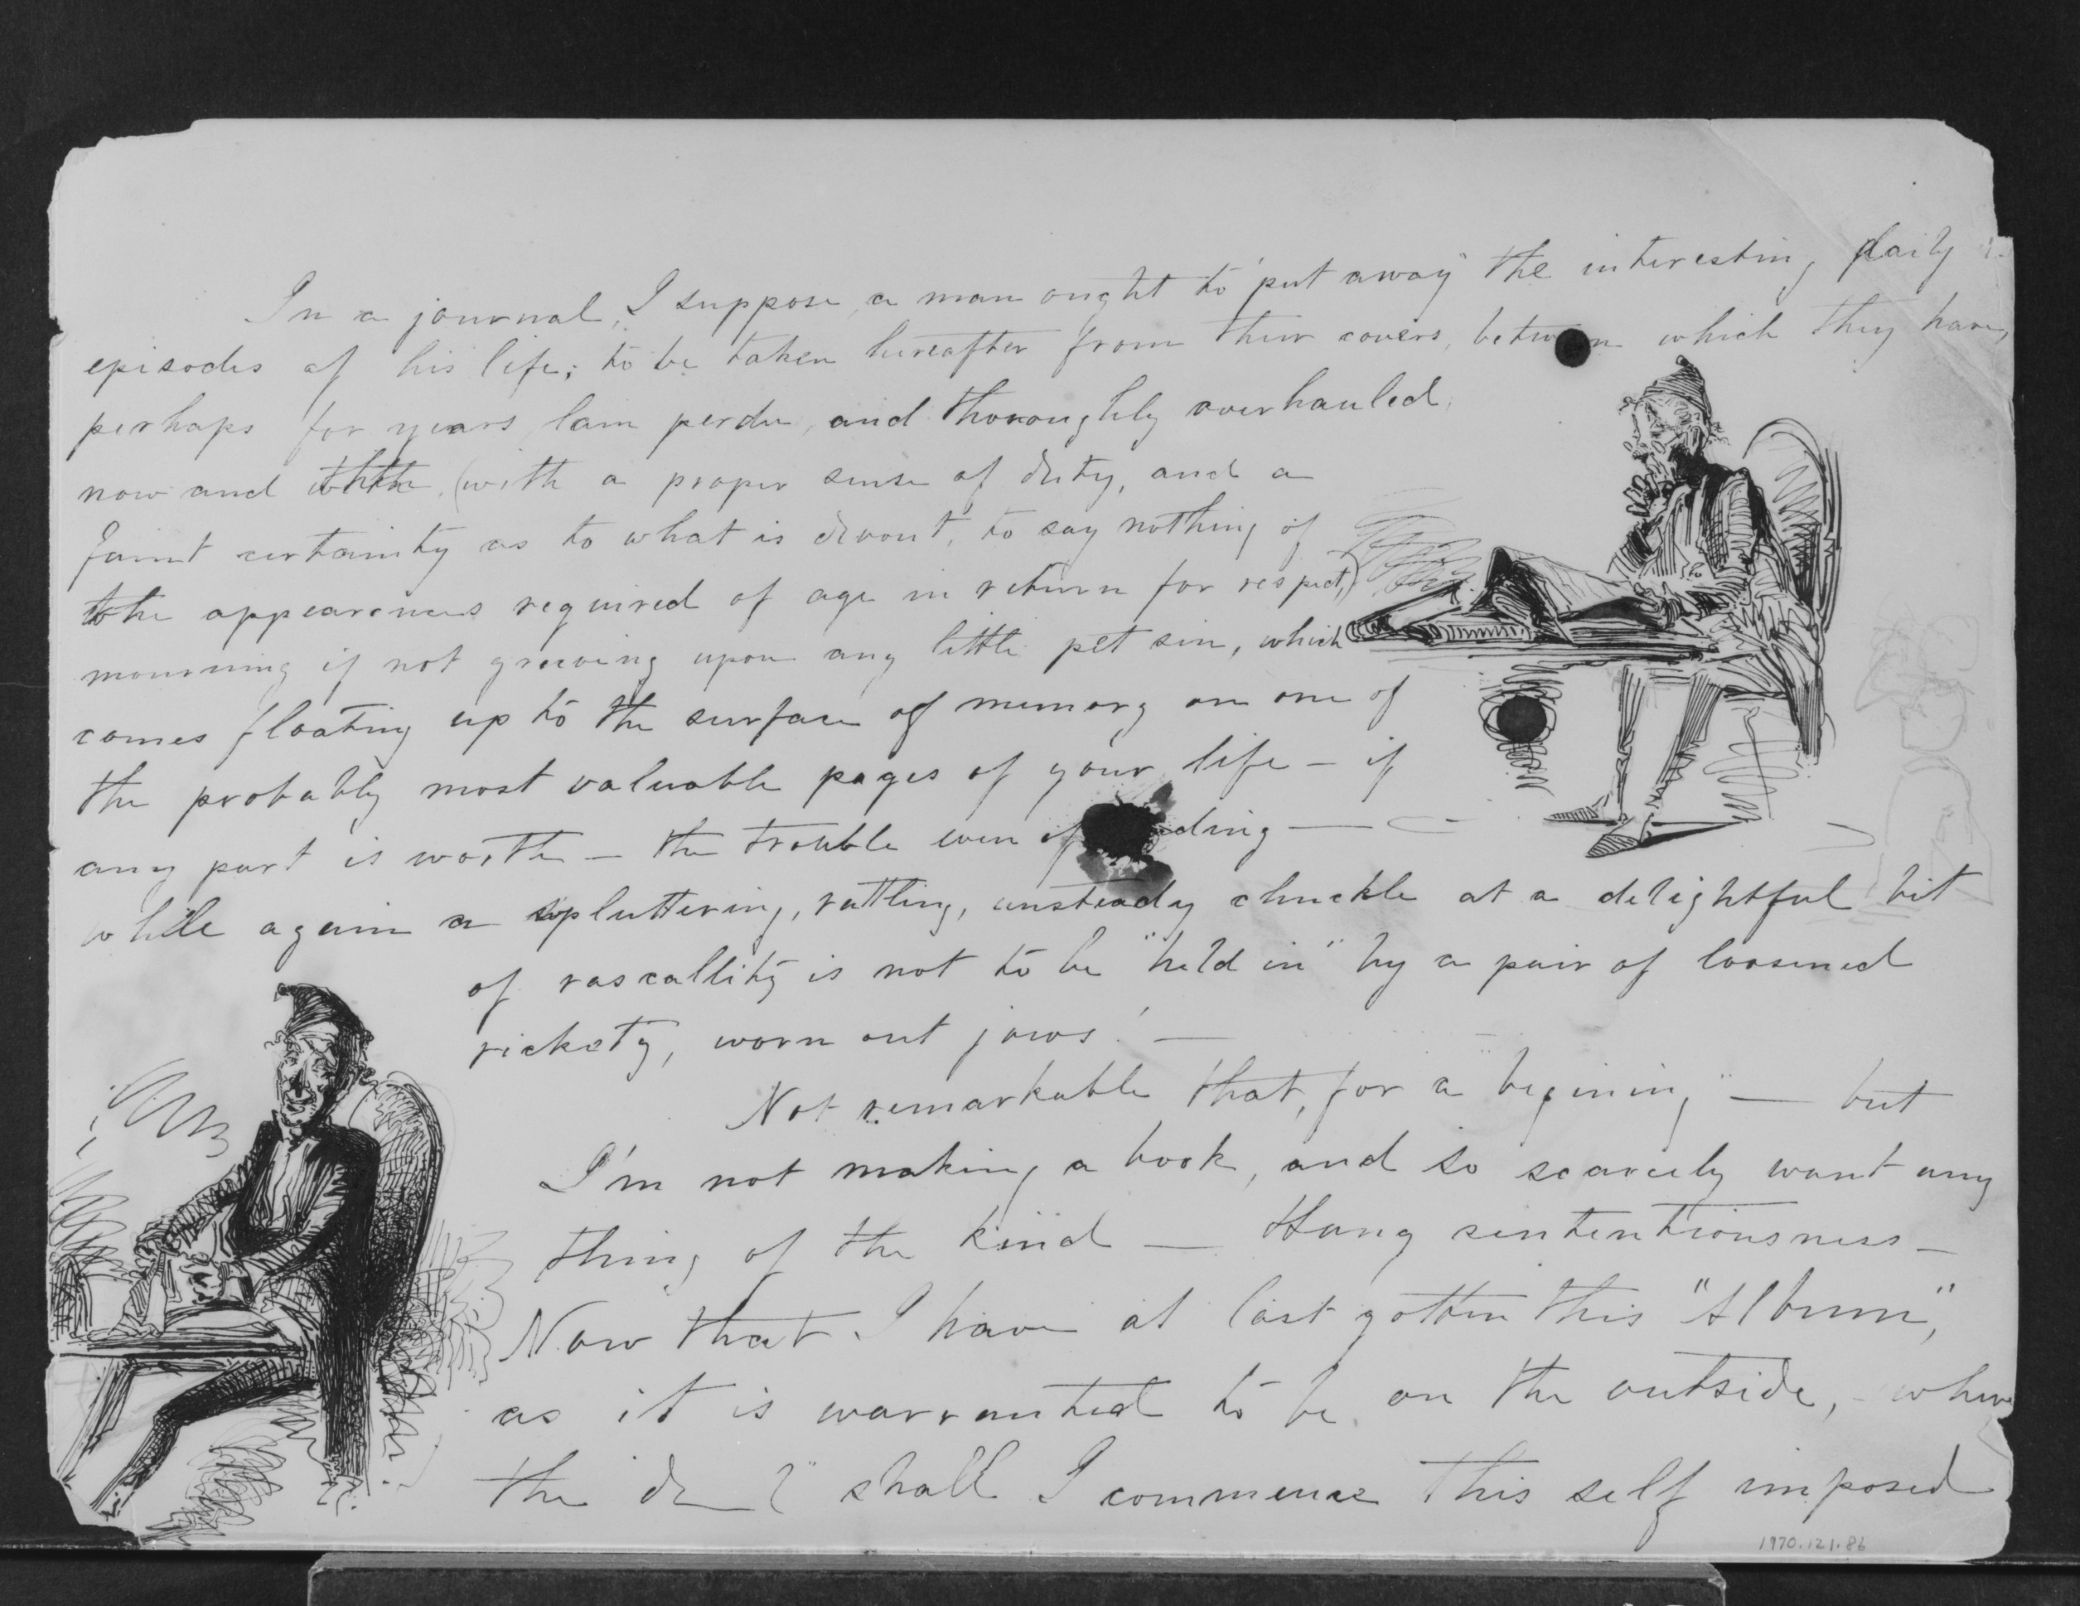 In a journal, I suppose, a man ought to "put away" the interesting daily
episodes of his life; to be taken hereafter from their covers, between which they have,
perhaps for years lain perdu, and thoroughly overhauled,
now and then (with a proper sense of duty, and a
faint certainty as to what is devout, to say nothing of
the appearances required of age in return for respect,)
mourning if not grieving upon any little pet sin, which
comes floating up to the surface of memory on one of
the probably most valuable pages of your life – if
any part is worth – the trouble even of ding —
while again a spluttering, rattling, unsteady chuckle at a delightful bit
of rascallity is not to be "held in" by a pair of loosened
rickety, worn out jaws! —
Not remarkable that, for a "begining" — but
I'm not making a book, and so scarcely want any
thing of the kind — Hang sententiousness –
Now that I have at last gotten this "Album",
as it is warranted to be on the outside, – where
the d——l shall I commence this self imposed
1970.121.86